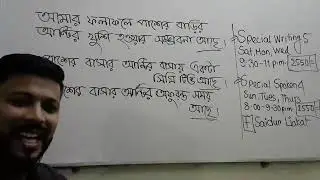 আমার ফলাফলে পাশের বাড়ির
আন্টির খুশি হওয়ার সম্ভাবনা আছে।
পাশের বাসার আন্টির বাসায় একটা
সিসি টিভি আছে।
শের বাসার আন্টির অফুরন্ত সময়
আছে।
Special Writing 5
Sat, Mon, Wed
9:30-11 p.m. 2550/-
Special Spoken 4
Sun, Tues, Thurs
8:00-9:30 pm 2550/-
F Saidun